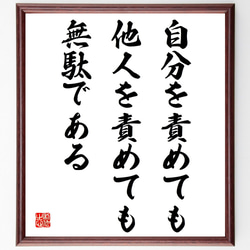 自分を責めても
他人を責めても
無駄である